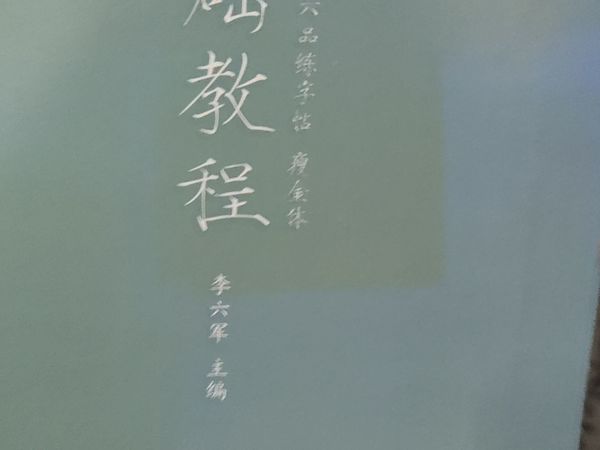 六品练字帖 瘦金体
础教程
李六军 主编